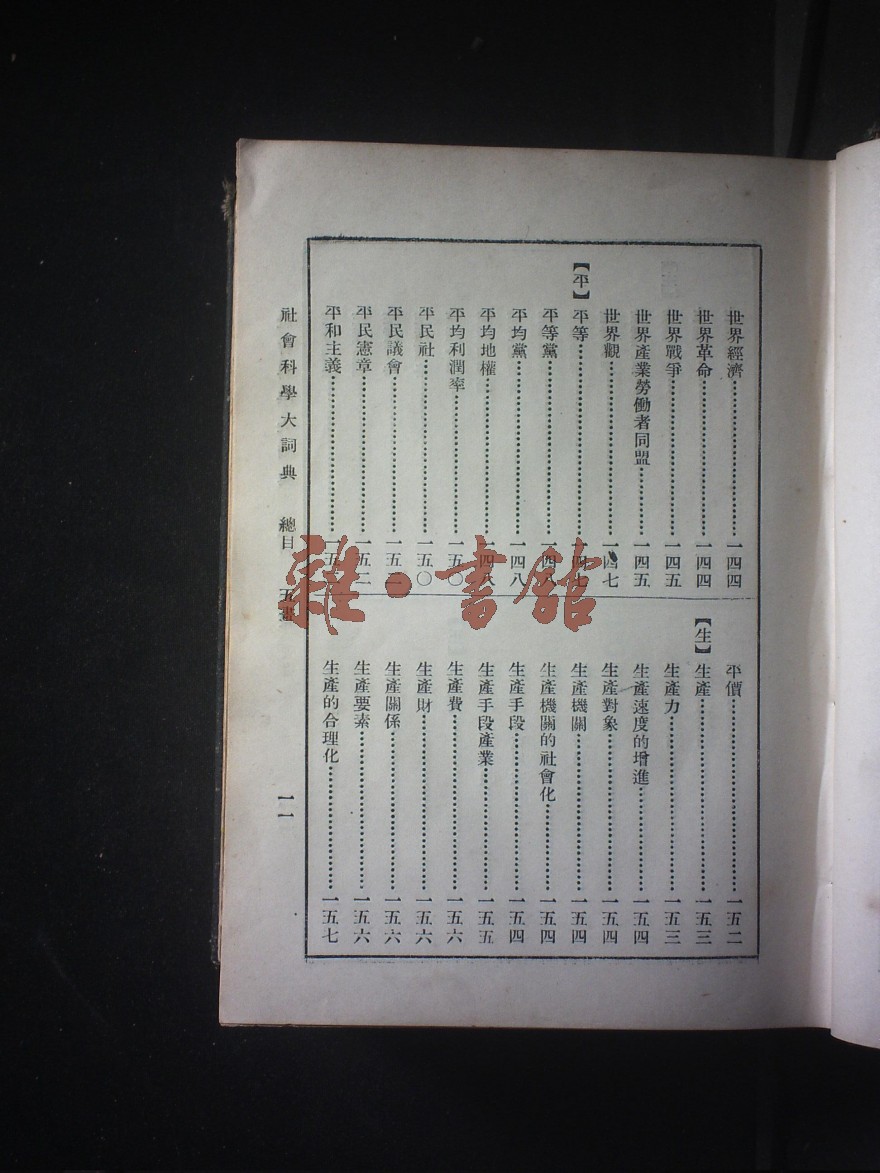 世界經濟……一四四
世界革命……一四四
世界戰爭……一四五
世界產業勞働者同盟……一四五
世界觀……一四七
【平】平等……一四七
平等黨……一四八
平均黨……一四八
平均地權……一四八
平均利潤率……一五〇
平民社……一五〇
平民議會……一五
平民憲章……一五二
平和主義……一五
平價……一五二
【生】生產……一五三
生產力……一五三
生產速度的增進……一五四
生產對象……一五四
生產機關……一五四
生產機關的社會化……一五四
生產手段……一五四
生產手段產業……一五五
生產費……一五六
生產財……一五六
生產關係……一五六
生產要素……一五六
生產的合理化……一五七
社會科學大詞典 總目 五畫 一一
雜·書館